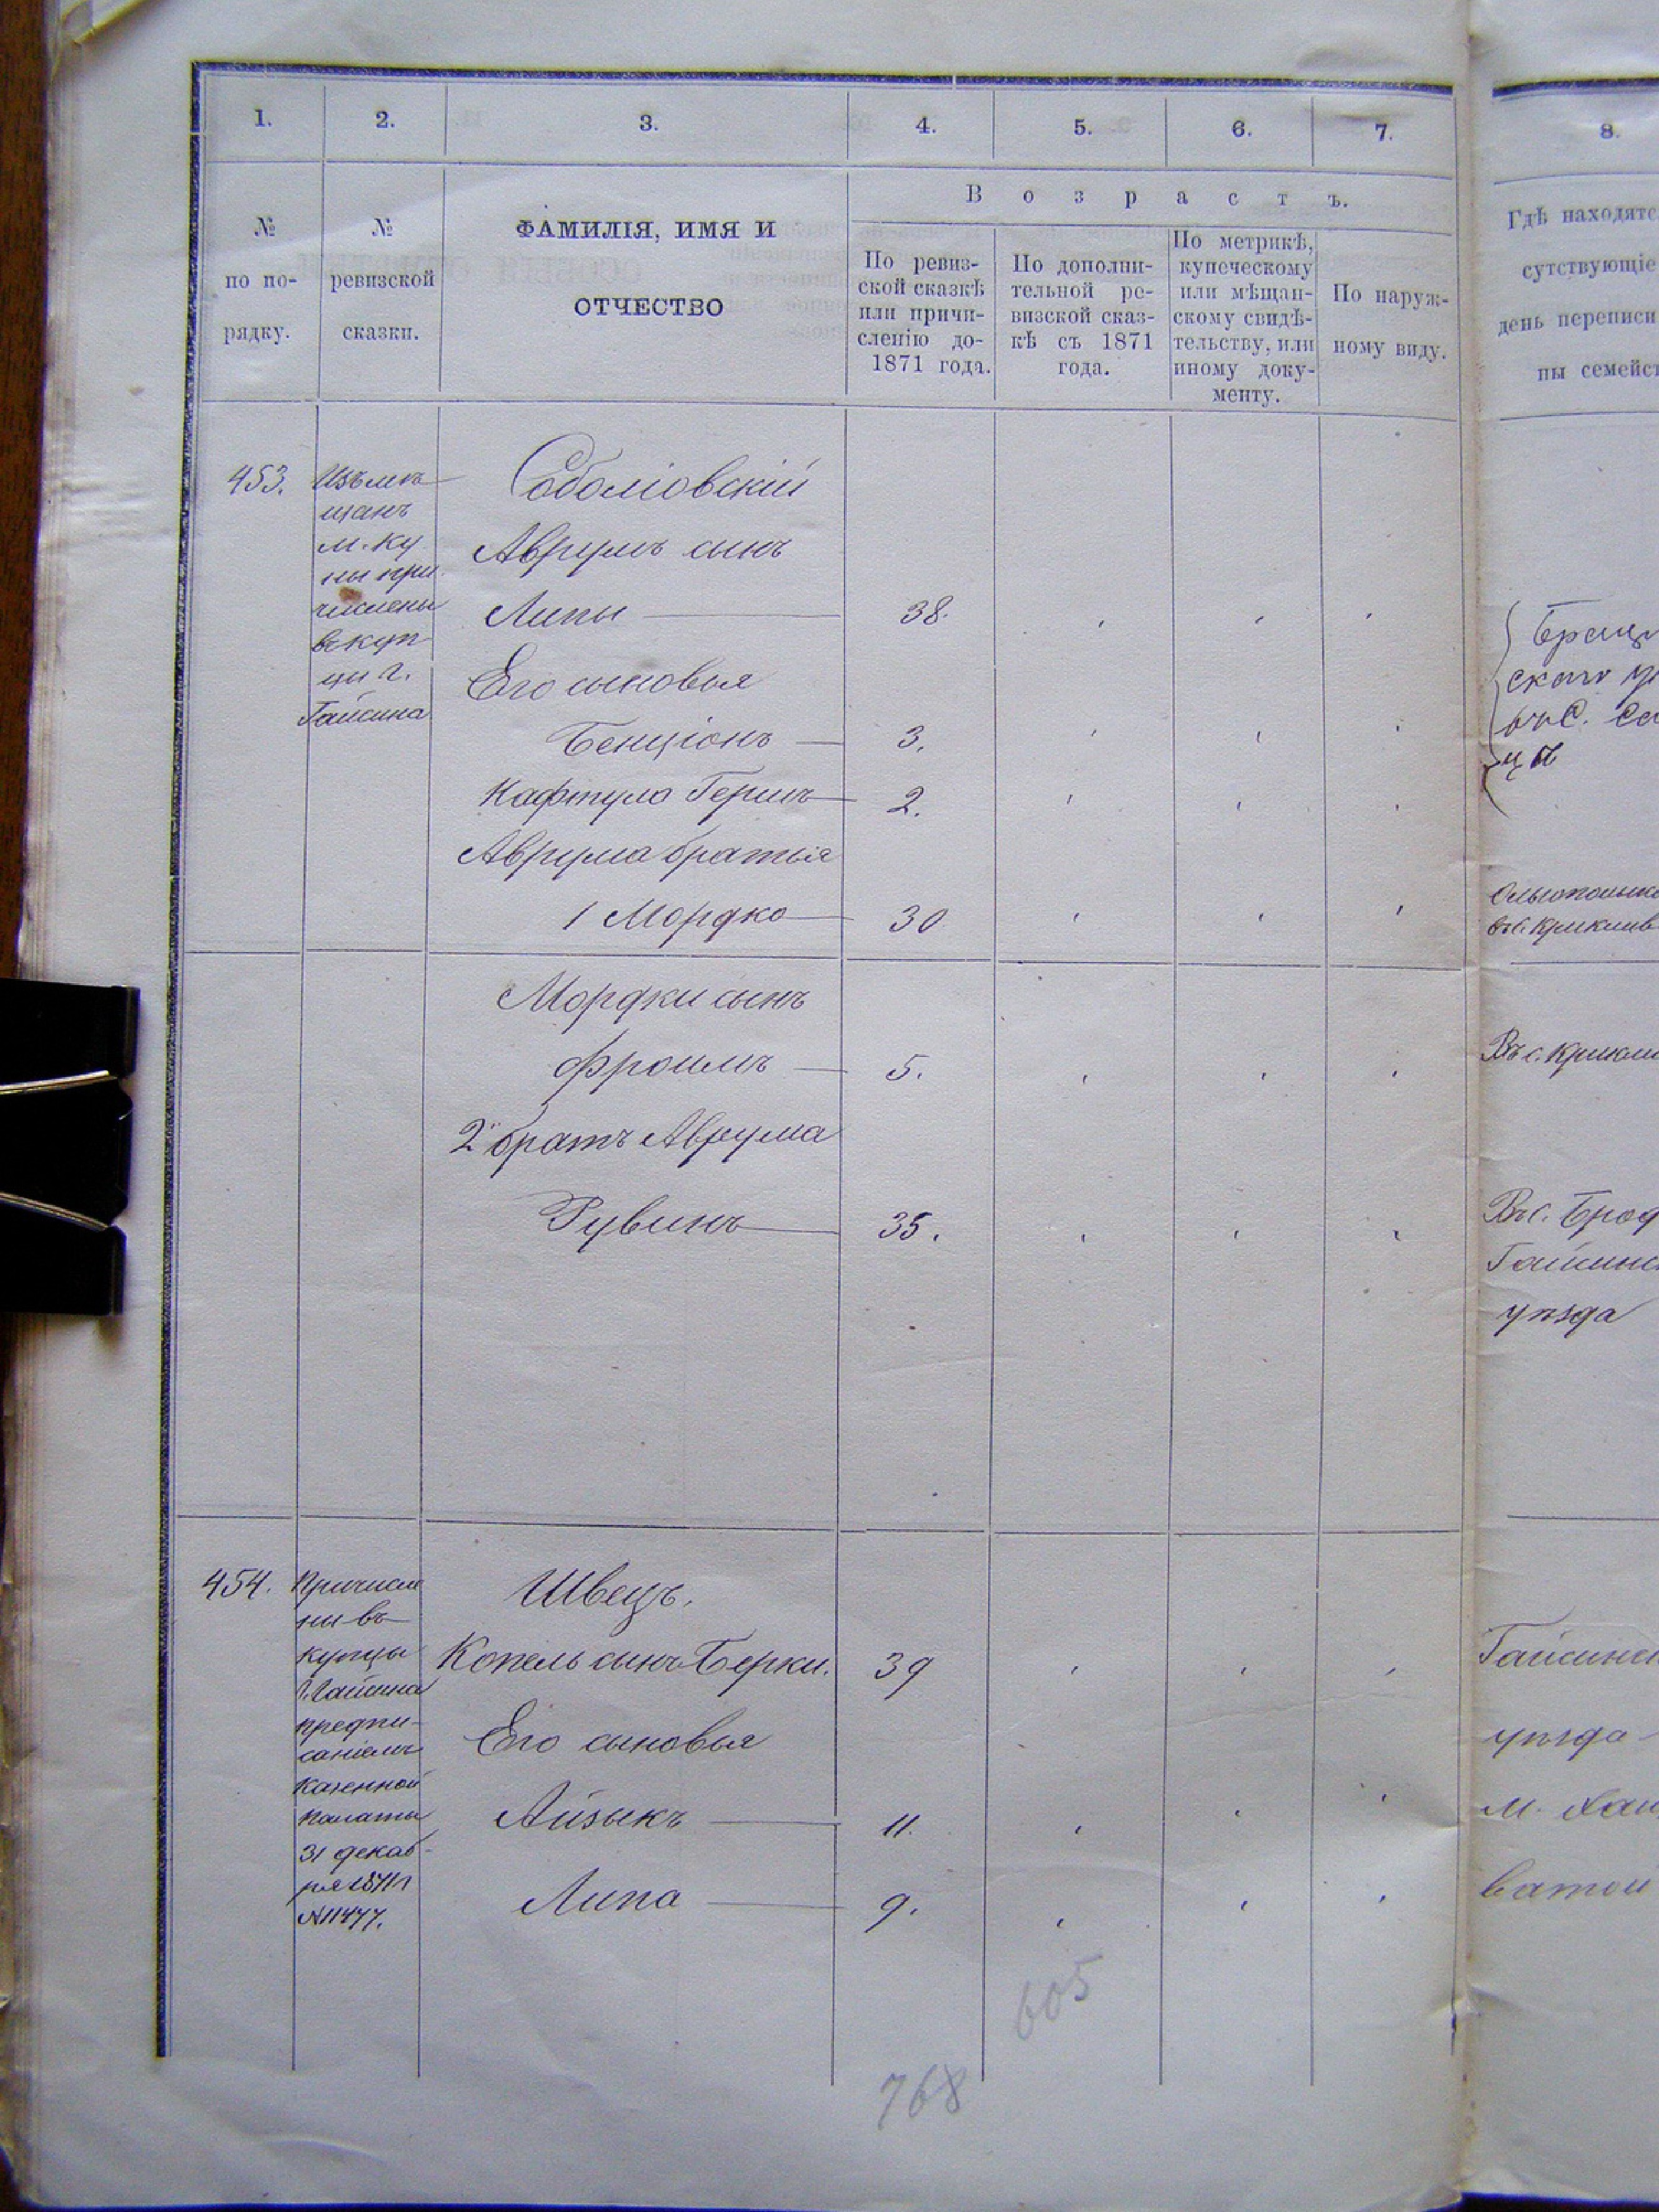 1. 2. 3. 4. 5. 6. 7. 8.
В о з р а с т ъ.
№
по по-
рядку.
№
ревизской
сказки.
ФАМИЛІЯ, ИМЯ И
ОТЧЕСТВО
По ревиз-
ской сказкѣ
или причи-
сленію до-
1871 года.
По дополни-
тельной ре-
визской сказ-
кѣ съ 1871
года.
По метрикѣ,
купеческому
или мѣщан-
скому свидѣ-
тельству, или
иному доку-
менту.
По наруж-
ному виду.
Гдѣ находятс
сутствующіе
день переписи
ны семейст
453.
Изъ мѣ-
щанъ
м. Ку
ны при
числены
въ куп-
цы г.
Гайсина
Соболіовскій
Аврумъ сынъ
Липы 38.
Его сыновья
Бенціонъ 3.
Кафтула Гершъ 2.
Аврума братья
1 Мордко 30
Мордки сынъ
Фроимъ 5.
2й братъ Аврума
Рувинъ 35.
Брацл
скаго у
въ с.
цѣ
Въ с.
Въ с. Брод
Гайсинс
уѣзда
454.
Причисле
ны въ
купцы
г. Гайсина
предпи-
саніемъ
Казенной
Палаты
31 декаб-
ря 1871 г
№ 11477.
Швецъ.
Копель сынъ Берки. 39
Его сыновья
Айзыкъ 11.
Липа 9.
Гайсинск
уѣзда
м. Хащ
ватой
605
768